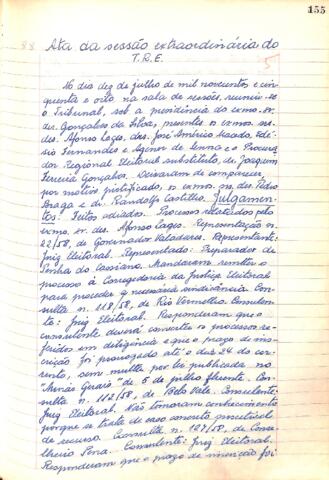 155
88 Ata da sessão extraordinária do
T.R.E.
No dia dez de julho de mil novecentos e cin-
quenta e oito na sala de sessões, reuniu-se
o Tribunal, sob a presidência do exmo. sr.
des. Gonçalves da Silva, presentes os exmos. srs.
des. Afonso Lages, drs. José Américo Macedo, Edé-
sio Fernandes e Agenor de Senna e o Procura-
dor Regional Eleitoral substituto, dr. Joaquim
Ferreira Gonçalves. Deixaram de comparecer,
por motivo justificado, os exmos. srs. des. Pedro
Braga e dr. Randolfo Castilho. Julgamen-
tos: Feitos adiados. Processos relatados pelo
exmo. sr. des. Afonso Lages. Representação n.
22/58, de Governador Valadares. Representante:
Juiz Eleitoral. Representado: Preparador de
Penha do Cassiano. Mandaram remeter o
processo à Corregedoria da Justiça Eleitoral
para proceder a necessária sindicância. Con-
sulta n. 118/58, de Rio Vermelho. Consulen-
te: Juiz Eleitoral. Responderam que o
consulente deverá converter os processos re-
feridos em diligência e que o prazo de ins-
crição foi prorrogado até o dia 24 do cor-
rente, sem multa, por lei publicada no
"Minas Gerais" de 5 de julho fluente. Con-
sulta n. 112/58, de Belo Vale. Consulente:
Juiz Eleitoral. Não tomaram conhecimento
porque se trata de caso concreto suscetível
de recurso. Consulta n. 127/58, de Conse-
lheiro Pena. Consulente: Juiz Eleitoral.
Responderam que o prazo de inscrição foi